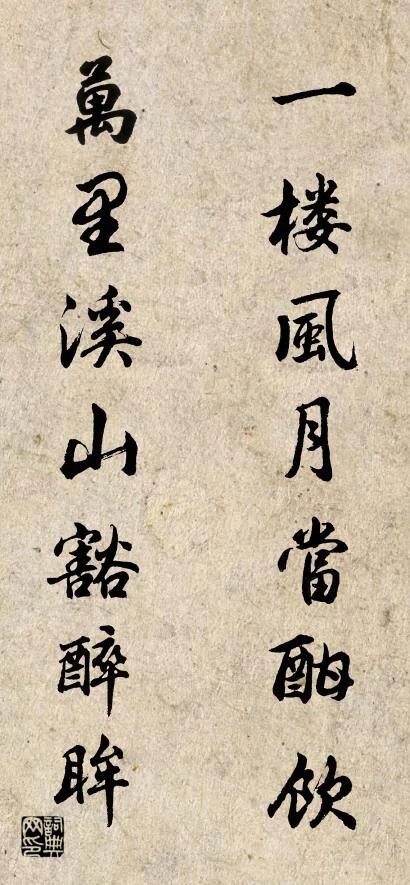 一楼風月當酣飲
萬里溪山豁醉眸
詞典网印